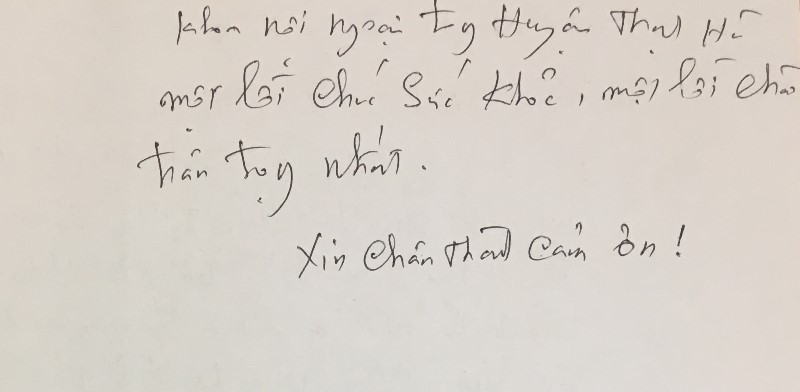 khoa nội ngoại Huyện Thạch Hà
một lời chúc sức khỏe, một lời chào
trân trọng nhất.
Xin chân thành cảm ơn!